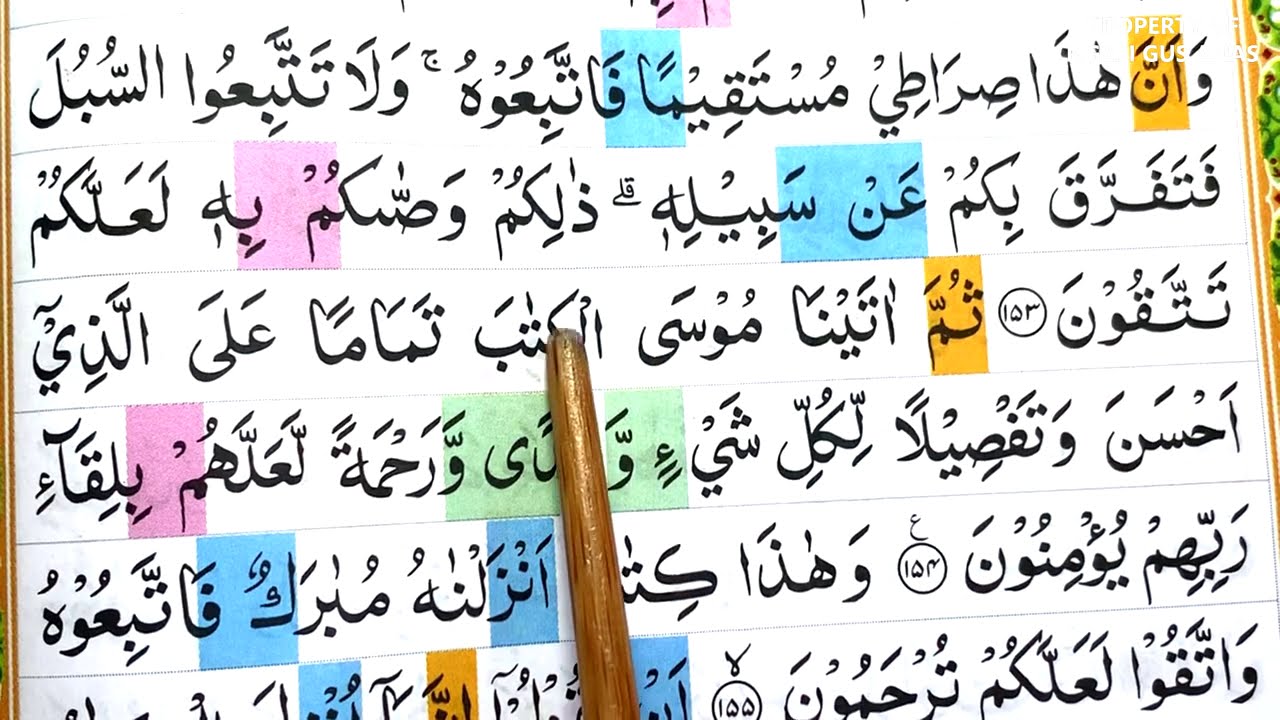 وَاَنَّ هٰذَا صِرَاطِيْ مُسْتَقِيْمًا فَاتَّبِعُوْهُ ۚ وَلَا تَتَّبِعُوا السُّبُلَ
فَتَفَرَّقَ بِكُمْ عَنْ سَبِيْلِهٖ ۗ ذٰلِكُمْ وَصّٰىكُمْ بِهٖ لَعَلَّكُمْ
تَتَّقُوْنَ ۝١٥٣ ثُمَّ اٰتَيْنَا مُوْسَى الْكِتٰبَ تَمَامًا عَلَى الَّذِيْٓ
اَحْسَنَ وَتَفْصِيْلًا لِّكُلِّ شَيْءٍ وَّ دًى وَّرَحْمَةً لَّعَلَّهُمْ بِلِقَاۤءِ
رَبِّهِمْ يُؤْمِنُوْنَ ۝١٥٤ ع وَهٰذَا كِتٰ اَنْزَلْنٰهُ مُبٰرَكٌ فَاتَّبِعُوْهُ
وَاتَّقُوْا لَعَلَّكُمْ تُرْحَمُوْنَ ۙ ۝١٥٥